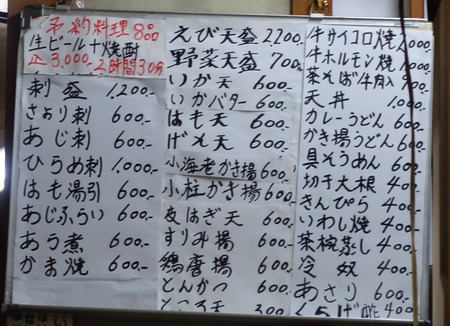 予約料理 8品
生ビール十焼酎
3,000.- 2時間30分
刺盛 1,200.-
さより刺 600.-
あじ刺 600.-
ひらめ刺 1,000.-
はも湯引 600.-
あじふらい 600.-
あら煮 600.-
かま焼 600.-
えび天盛 2,200.-
野菜天盛 700.-
いか天 600.-
いかバター 600.-
はも天 600.-
げそ天 600.-
小海老かき揚 600.-
小柱かき揚 600.-
皮はぎ天 600.-
すりみ揚 600.-
鶏唐揚 600.-
とんかつ 600.-
ところ天 300.-
牛サイコロ焼 1,000.-
牛ホルモン焼 1,000.-
茶そば牛肉入 900.-
天丼 1,000.-
カレーうどん 600.-
かき揚うどん 600.-
具そうめん 600.-
切干大根 400.-
きんぴら 400.-
いわし焼 400.-
茶椀蒸し 400.-
冷奴 400.-
あさり 600.-
くらげ酢 400.-